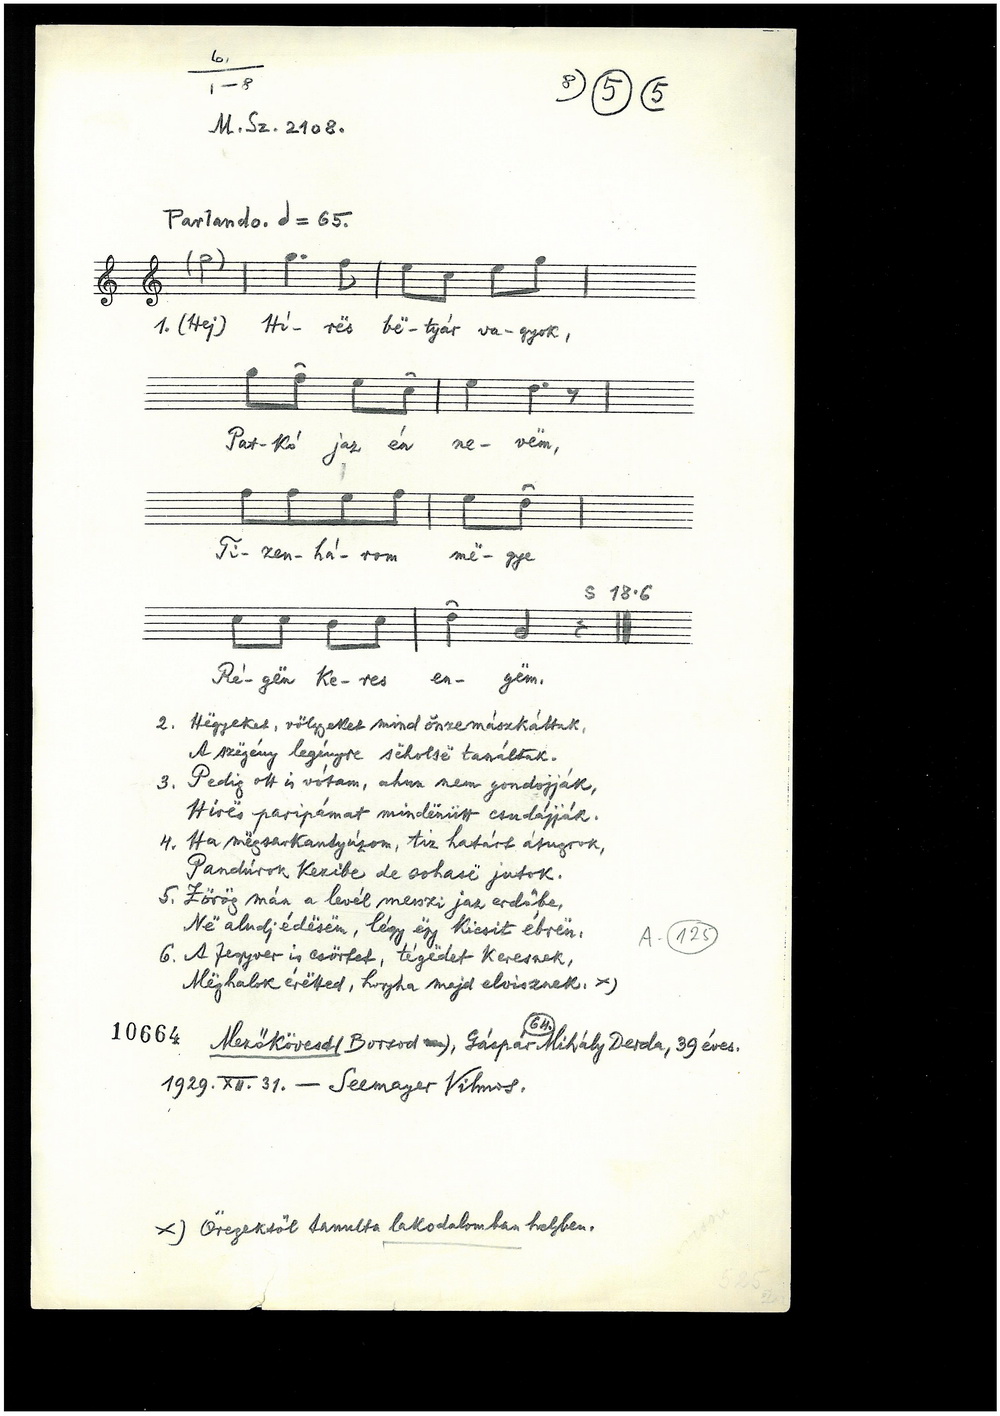 6.
1–8
8) 5 5
M. Sz. 2108.
Parlando. = 65.
1. (Hej) Hí- rës bë- tyár va- gyok,
Pat- kó jaz én ne- vëm,
Ti- zen- há- rom më- gye
S 18·6
Ré- gën ke- res en- gëm.
2. Hëgyeket, völgyeket mind őszemászkáltak,
A szëgény legényre sëholsë tanáltak.
3. Pedig ott is vótam, ahun nem gondojják,
Hírës paripámat mindënütt csudájják.
4. Ha mëgsarkantyúzom, tiz határt átugrok,
Pandúrok kezibe de sohasë jutok.
5. Zörög mán a levél messzi jaz erdőbe,
Në aludj édësëm, légy ëgy kicsit ébrën.
A. 125
6. A fegyver is csörtet, tégëdet keresnek,
Mëghalok éretted, hogyha majd elvisznek. x)
64.
10664 Mezőkövesd (Borsod), Gáspár Mihály Derda, 39 éves.
1929. XII. 31. — Seemayer Vilmos.
x) Öregektől tanulta lakodalomban helyben.